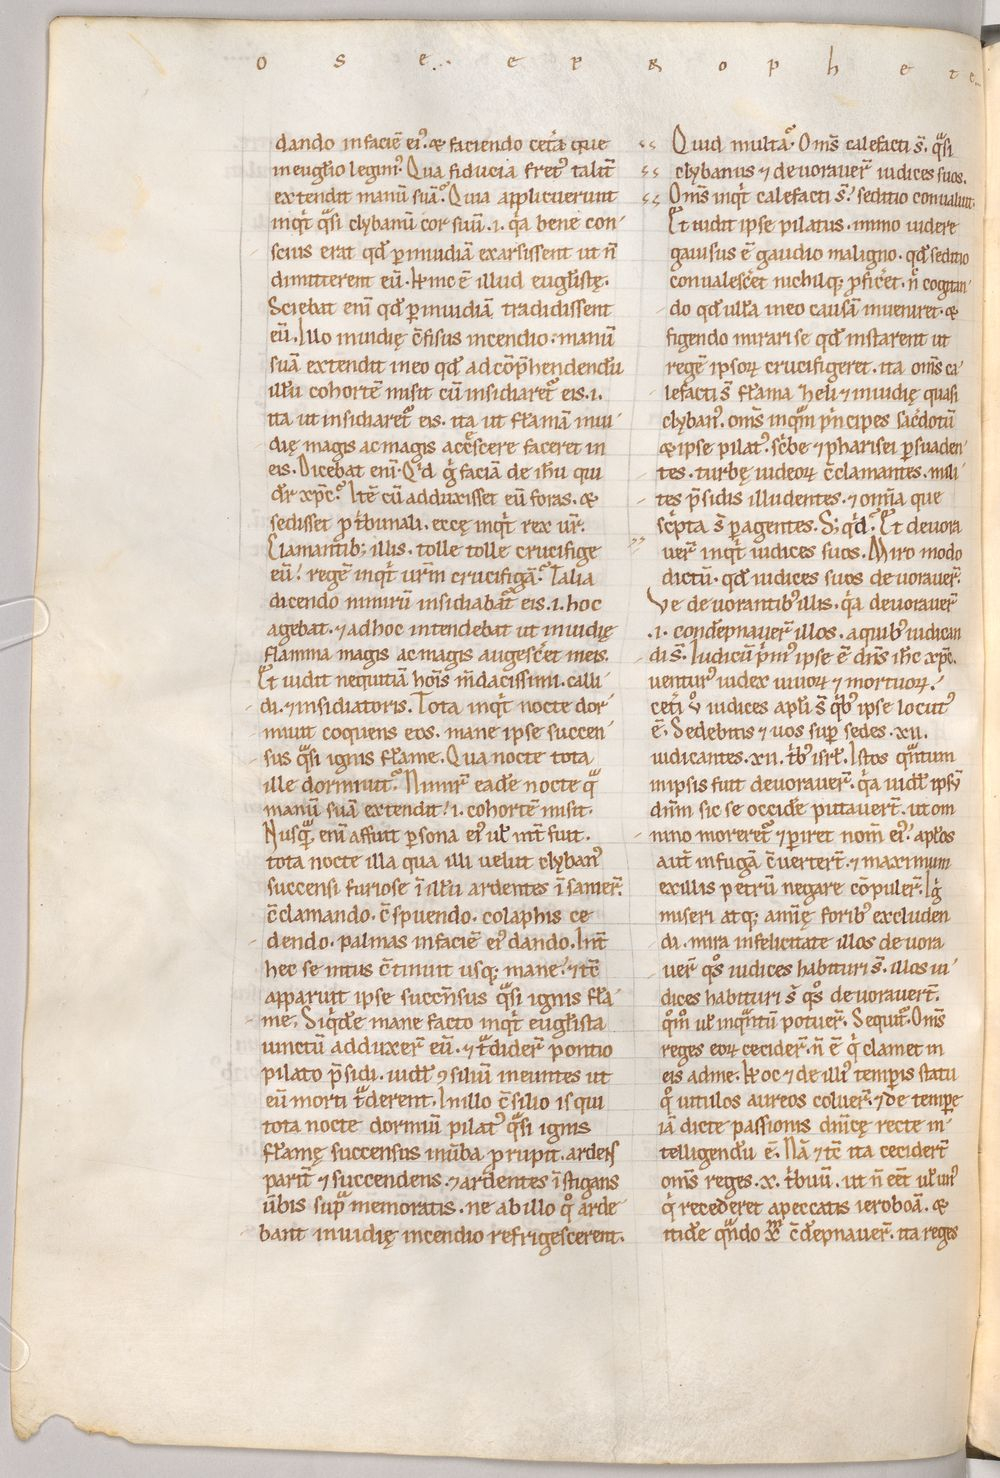 O S E E P R O P H E T E
dando in faciē eiꝰ. & faciendo cet͛a que
in eug̅lio legimꝰ. Qua fiducia fretꝰ talit̅
extendit manū suā? Quia applicuerunt
inq͛t q̃si clybanū cor suū .i. q͛a bene con
scius erat qd̅ p̱ inuidiam exarsissent ut n̅
dimitterent eū. Hinc ē illud eug̅listę.
Sciebat eni̅ qd̅ p̱ inuidiā tradidissent
eū. Illo inuidię c̅fisus incendio. manū
suā extendit in eo qd̅ ad cōp̅hendendū
ih̅m cohortē misit cū insidiaret̃ eis .i.
ita ut insidiaret̃ eis. ita ut flāmā inui
dię magis ac magis acc̃escere faceret in
eis. Dicebat eni̅. Q͛d g̊ faciā de ih̅u qui
dr̅ xp̅c? Itē cū adduxisset eū foras. &
sedisset p̱ t͛bunali. ecce inq͛t rex ur̅.
Clamantib; illis. tolle tolle crucifige
eū! regē inq͛t ur̅m crucifigā? Talia
dicendo nimirū insidiabat̃ eis .i. hoc
agebat. ⁊ ad hoc intendebat ut inuidię
flamma magis ac magis augesc͛et in eis.
Et uidit nequitiā ho̅is m̅dacissimi. calli
di. ⁊ insidiatoris. Tota inq͛t nocte dor
miuit coquens eos. mane ipse succen
sus q̃si ignis flāme. Qua nocte tota
ille dormiuit? Nimir̅ eadē nocte q̃
manū suā extendit! .i. cohortē misit.
Nusq̃; eni̅ affuit p̱sona eiꝰ ul̅ int̅ fuit.
tota nocte illa qua illi uelut clybanꝰ
succensi furiose ī ih̅m ardentes īsanier̅.
c̅clamando. c̅spuendo. colaphis ce
dendo. palmas in faciē eiꝰ dando. Int̅
hec se intus c̅tinuit usq; mane. ⁊ tc̅
apparuit ipse succe̅nsus q̃si ignis flā
me. Siq͛dē mane facto inq͛t eug̅lista
uinctū adduxer̅ eū. ⁊ t̃dider̅ pontio
pilato p̅sidi. iud̅i ꝯsiliū ineuntes ut
eū morti t̃derent. In illo c̅silio is qui
tota nocte dormiū pilatꝰ q̃si ignis
flāmę succensus in u̅ba p̱rupit. ardens
parit̅ ⁊ succendens. ⁊ ardentes īstigans
u̅bis sup̃ memoratis. ne ab illo q̊ arde
bant inuidię incendio refrigescerent.
Quid multa? Om̅s calefacti s̅. q̃si
clybanus ⁊ deuorauer̅ iudices suos.
Om̅s inq͛t calefacti s̅! seditio conualuit.
Et uidit ipse pilatus. immo uidere
gauisus ē gaudio maligno. qd̅ seditio
conualesc͛et nichilq; p̱fic͛et. n̅ cogitan
do qd̅ ulla in eo causā inueniret. &
figendo mirari se qd̅ instarent ut
regē ipsoꝝ crucifigeret. ita om̅s ca
lefacti s̅ flāma zeli ⁊ inuidię quasi
clybanꝰ. om̅s inquā p͛ncipes sac͛dotū
& ipse pilatꝰ. sc͛be ⁊ pharisei p̱suaden
tes. turbę iudeoꝝ c̅clamantes. mili
tes p̅sidis illudentes. ⁊ om̅ia que
sc͛pta s̅ p̱agentes. S; q͛d? Et deuora
uer̅ inq͛t iudices suos. Miro modo
dictū. qd̅ iudices suos deuorauer̅.
Ve deuorantibꝰ illis. q͛a deuorauer̅
.i. condēpnauer̅ illos. a quibꝰ iudican
di s̅. Iudicū p͛mꝰ ipse ē dn̅s ih̅c xp̅c.
venturꝰ iudex uiuoꝝ ⁊ mortuoꝝ.
cet͛i ů iudices apl̅i s̅ q͛bꝰ ipse locutꝰ
ē. Sedebitis ⁊ uos sup̱ sedes .xii.
iudicantes .xii. t͛bꝰ isrl̅. Istos q̃ntum
in ipsis fuit deuorauer̅. q͛a uid̅l ipsū
dn̅m sic se occidē putauert̅. ut om
nino moreret̃ ⁊ p̱iret nom̅ eiꝰ. apl̅os
aut̅ in fugā c̅uertert̅. ⁊ maximum
ex illis petrū negare cōpuler̅. Ig̊
miseri atq; amńę foribꝰ excluden
di. mira infelicitate illos deuora
uer̅ q̊s iudices habituri s̅. illos iu
dices habituri s̅ q̊s deuorauert̅.
q̊m̅ ul̅ inq̃ntū potuer̅. Sequit̃. Om̅s
reges eoꝝ cecider̅. n̅ ē q͛ clamet in
eis ad me. Hoc ⁊ de illiꝰ temp̱is statu
q̊ uitulos aureos coluer̅. ⁊ de temp̱e
iā dicte passionis dn̅icę recte in
telligendū ē. Nā ⁊ tc̅ ita cecidert̅
om̅s reges .x. t͛buū. ut n̅ eēt ul̅ unꝰ
q͛ recederet a peccatis ieroboā. &
itidē q̃ndo xp̅m c̅dēpnauer̅. ita reges